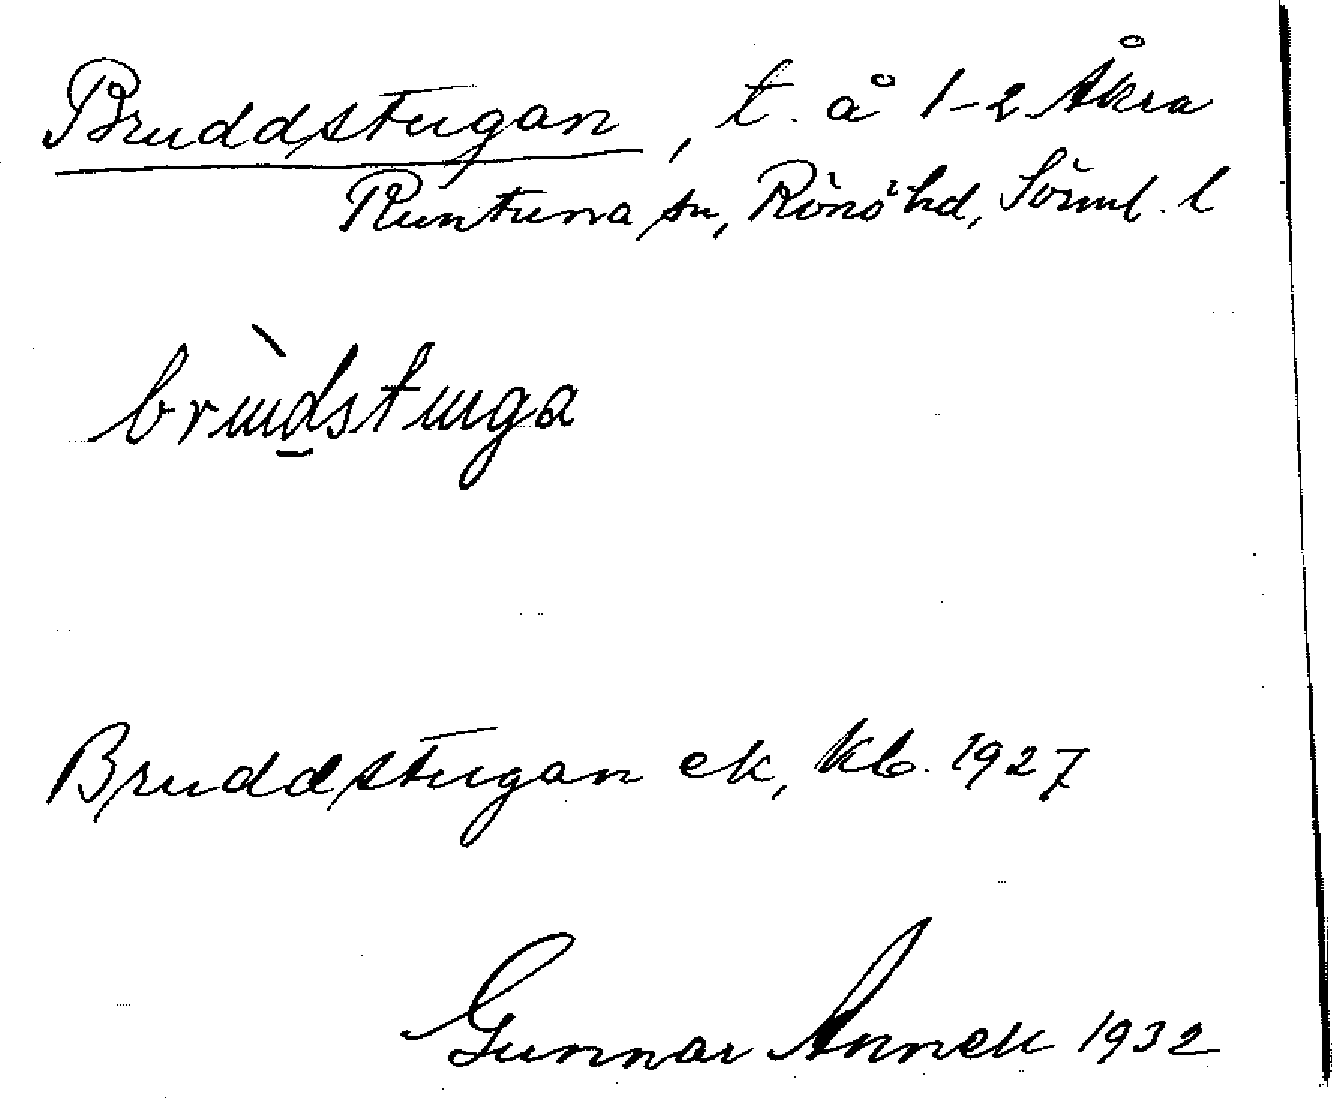 Bruddstugan, t. å 1-2 Åkra
Runtuna sn, Rönö hd, Sörml. l
brùd̲stuga
Bruddstugan ek, kb. 1927
Gunnar Annell 1932